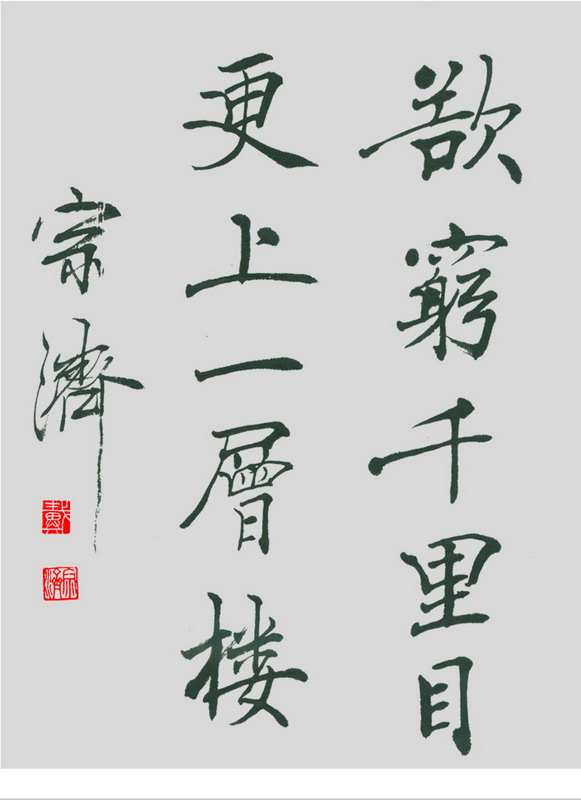 欲窮千里目
更上一層楼
宗濟
戴
宗濟